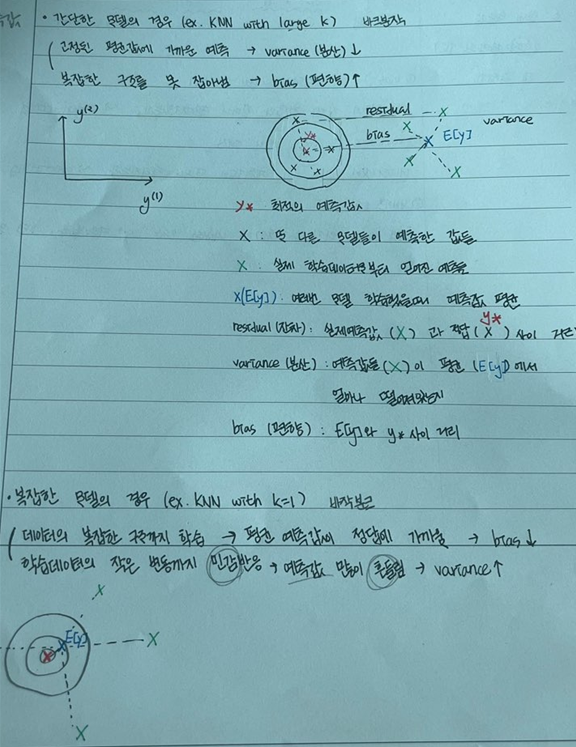 · 간단한 모델의 경우 (ex. KNN with large k)
고정된 평균값에 가까운 예측 → variance (분산) ↓
복잡한 구조를 못 잡아냄 → bias (편향) ↑
y(2)
residual
X
X
y*
X
bias
X
X
E[y]
variance
X
X
X
X
X
X
y(1)
y* 최적의 예측값
X : 또 다른 모델들이 예측한 값들
X : 실제 학습데이터로부터 얻어진 예측
X(E[y]) : 여러번 모델 학습했을때 예측값 평균
y*
residual (잔차) : 실제예측값 (X) 과 정답 (X) 사이 거리
variance (분산) : 예측값들 (X) 이 평균 (E[y])에서
얼마나 떨어져있는지
bias (편향) : E[y]와 y* 사이 거리
· 복잡한 모델의 경우 (ex. KNN with k=1)
데이터의 복잡한 구조까지 학습 → 평균 예측값이 정답에 가까움 → bias ↓
학습데이터의 작은 변동까지 민감반응 → 예측값 많이 흔들림 → variance ↑
X
E[y]
X
X
X
X